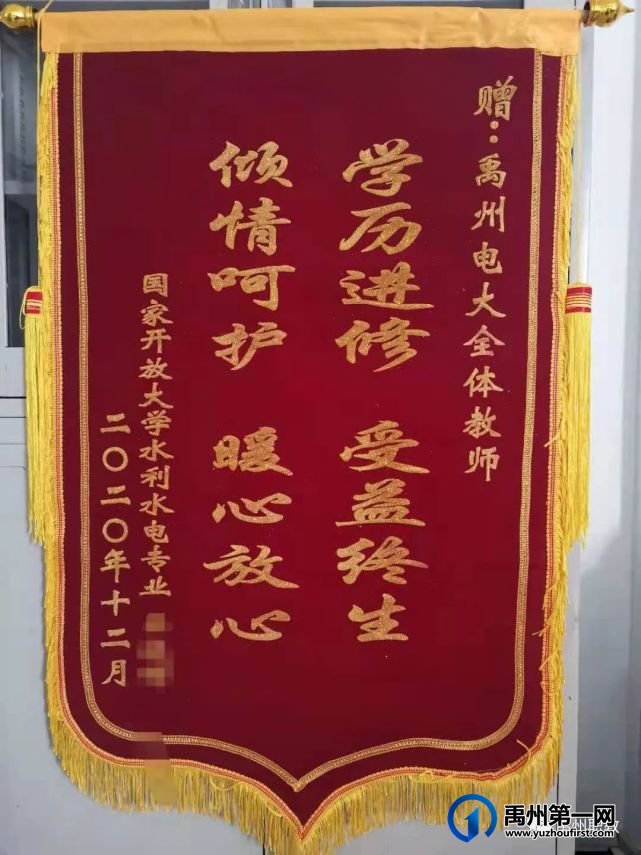 赠：禹州电大全体教师
学历进修 受益终生
倾情呵护 暖心放心
国家开放大学水利水电专业
二〇二〇年十二月
禹州第一网
www.yuzhoufirst.com